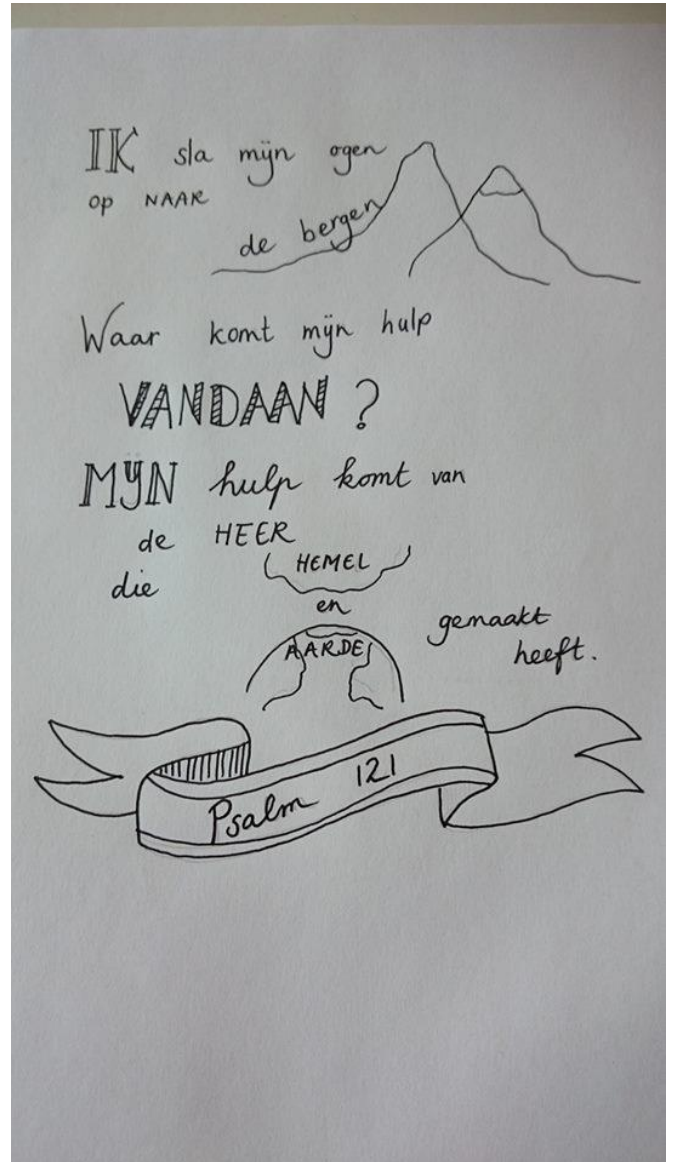 IK sla mijn ogen
op NAAR
de bergen
Waar komt mijn hulp
VANDAAN ?
MIJN hulp komt van
de HEER
die HEMEL
en
AARDE gemaakt
heeft.
Psalm 121